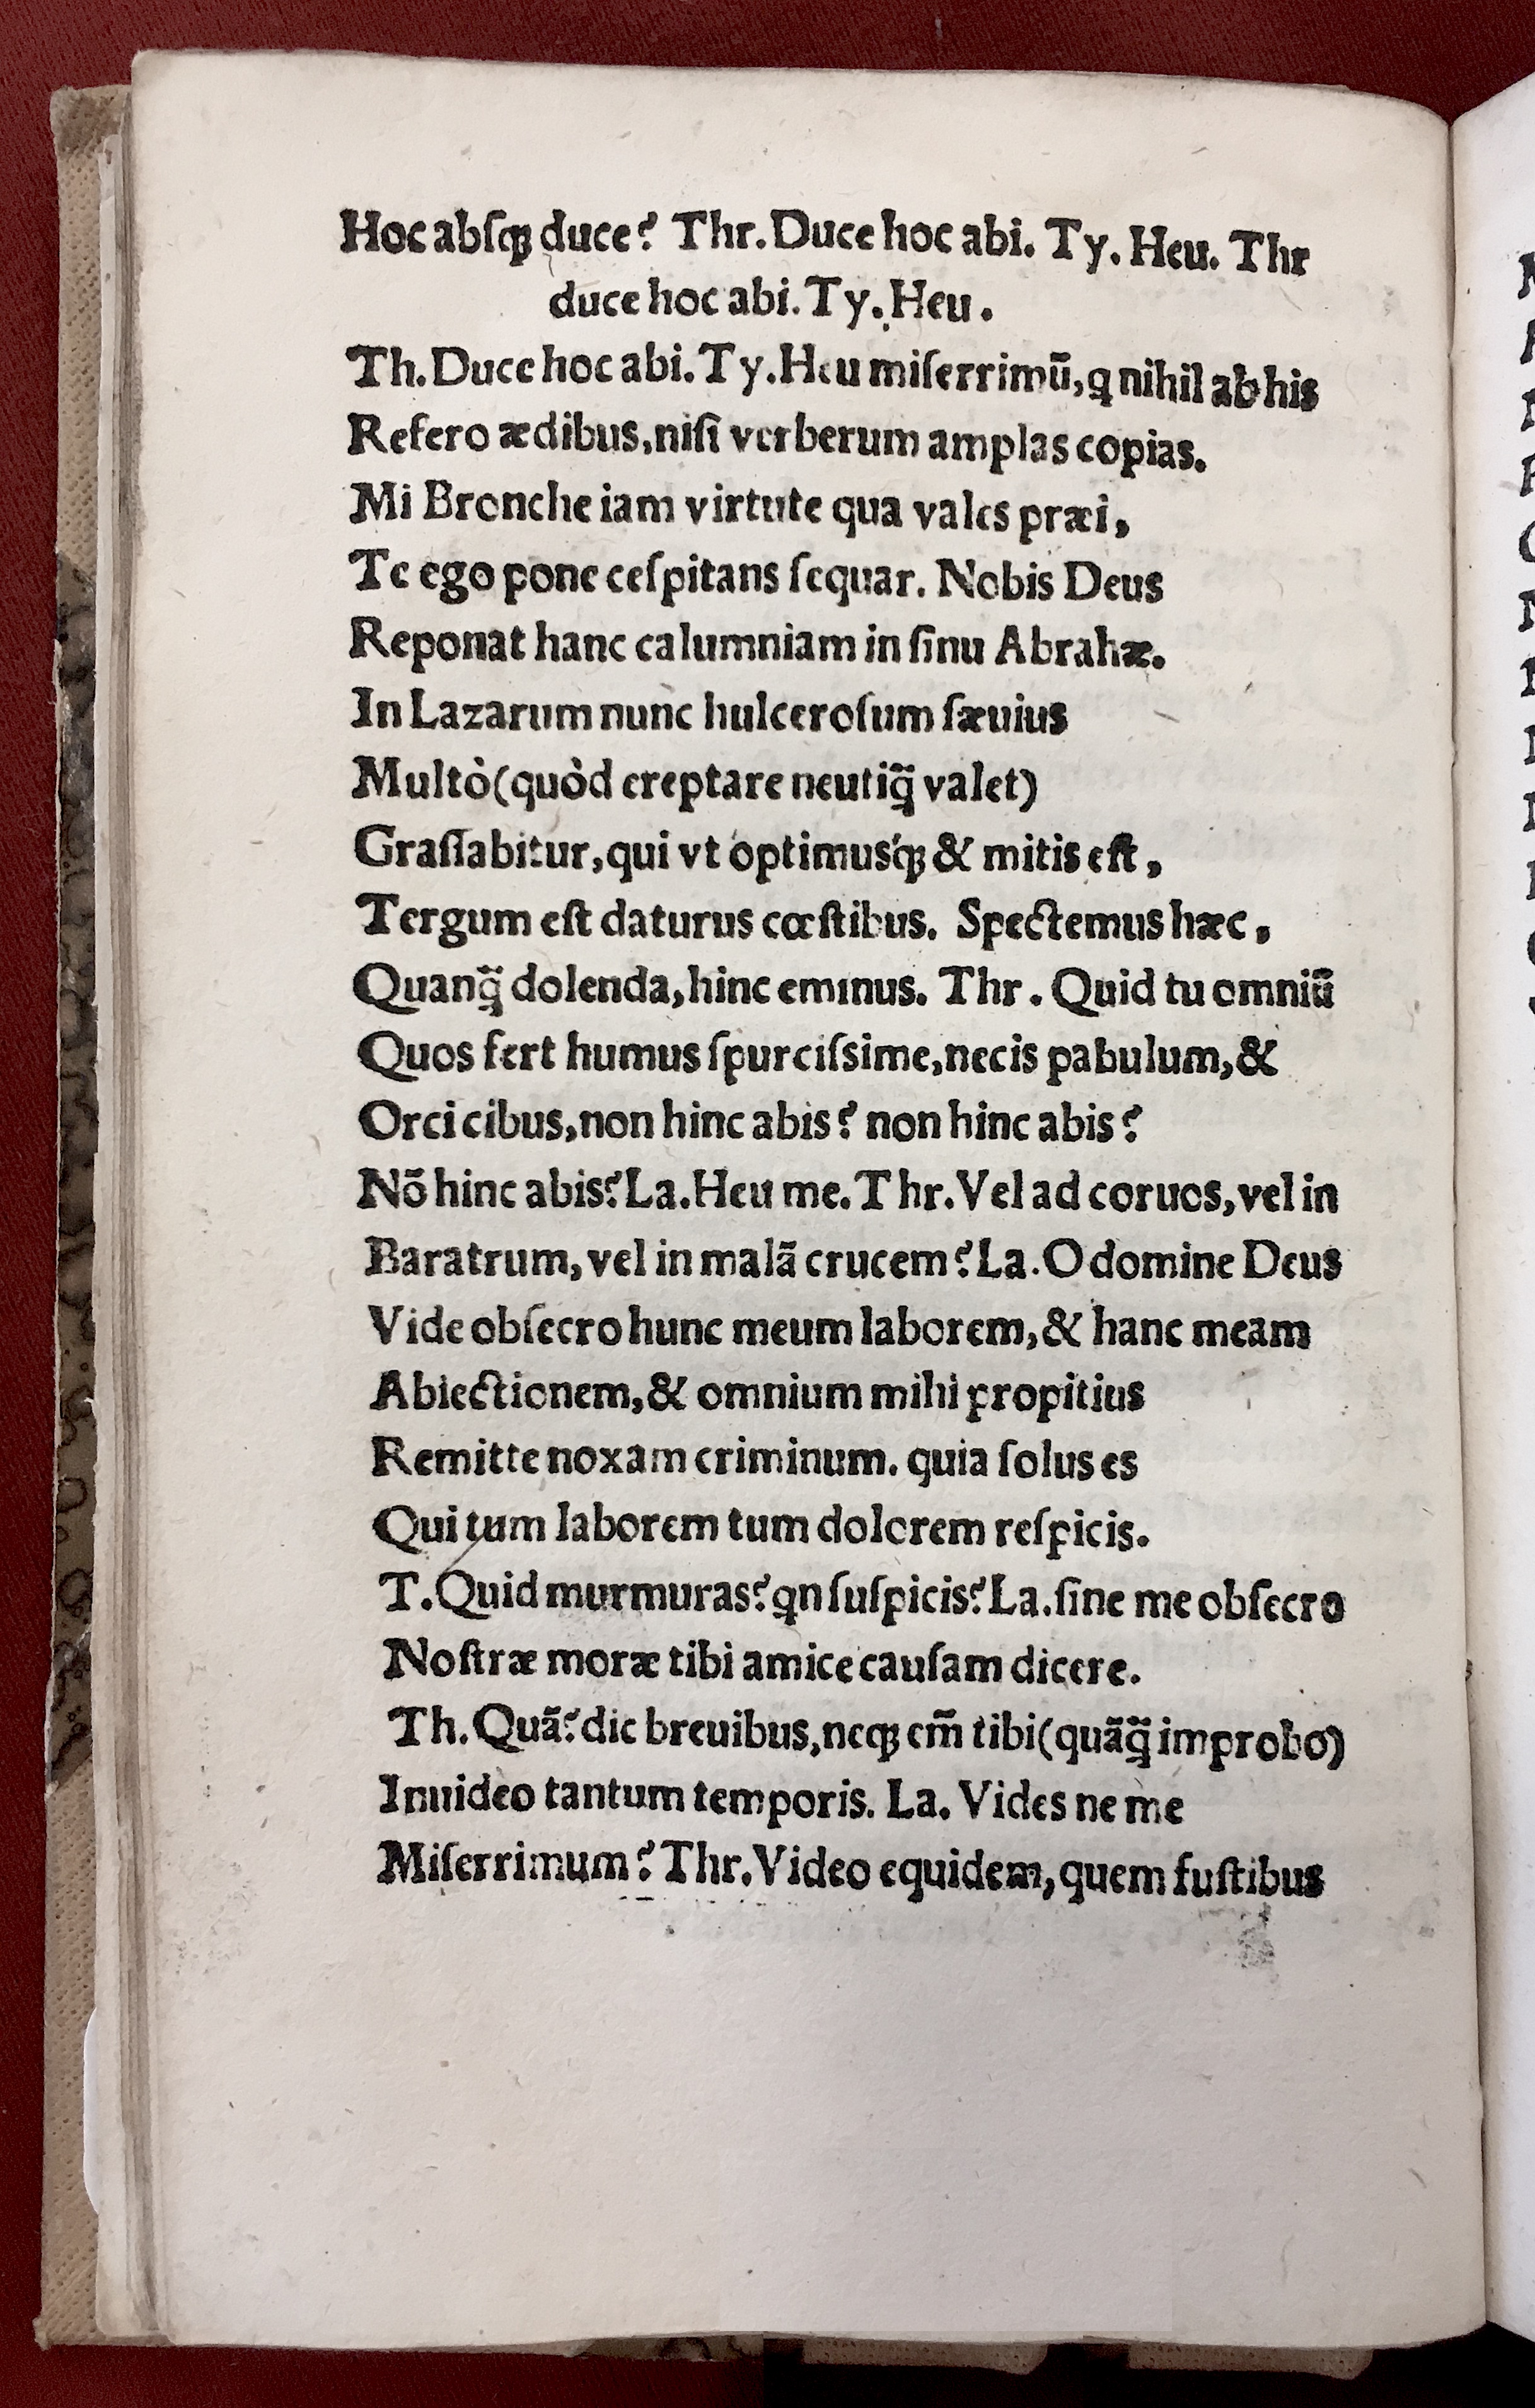 Hoc abſqꝫ duce? Thr. Duce hoc abi. Ty. Heu. Thr
duce hoc abi. Ty. Heu.
Th. Duce hoc abi. Ty. Heu miſerrimū, q nihil ab his
Refero ædibus, niſi verberum amplas copias.
Mi Bronche iam virtute qua vales præi,
Te ego pone ceſpitans ſequar. Nobis Deus
Reponat hanc calumniam in ſinu Abrahæ.
In Lazarum nunc hulceroſum ſæuius
Multò (quòd ereptare neutiq̃ valet)
Graſſabitur, qui vt optimusq́ꝫ & mitis eſt,
Tergum eſt daturus cœſtibus. Spectemus hæc,
Quanq̃ dolenda, hinc eminus. Thr. Quid tu omniū
Quos fert humus ſpurciſsime, necis pabulum, &
Orci cibus, non hinc abis? non hinc abis?
Nō hinc abis? La. Heu me. Thr. Vel ad coruos, vel in
Baratrum, vel in malā crucem? La. O domine Deus
Vide obſecro hunc meum laborem, & hanc meam
Abiectionem, & omnium mihi propitius
Remitte noxam criminum. quia ſolus es
Qui tum laborem tum dolorem reſpicis.
T. Quid murmuras? qn ſuſpicis? La. ſine me obſecro
Noſtræ moræ tibi amice cauſam dicere.
Th. Quā? dic breuibus, neqꝫ em̄ tibi (quāq̃ improbo)
Inuideo tantum temporis. La. Vides ne me
Miſerrimum? Thr. Video equidem, quem fuſtibus